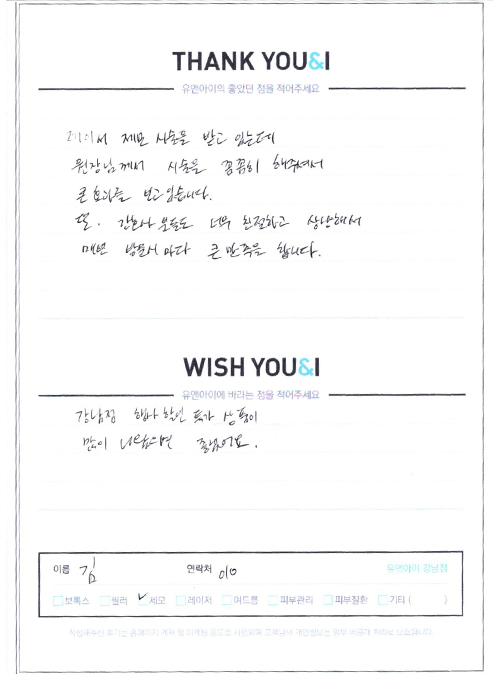 THANK YOU&I
유앤아이의 좋았던 점을 적어주세요
레이저 제모 시술을 받고 있는데
원장님께서 시술을 꼼꼼히 해주셔서
큰 효과를 보고있습니다.
또. 간호사 분들도 너무 친절하고 상냥해서
매번 방문시 마다 큰 만족을 합니다.
WISH YOU&I
유앤아이에 바라는 점을 적어주세요
강남점 행사 할인 특가 상품이
많이 나왔으면 좋겠어요.
이름 김 연락처 010 유앤아이 강남점
보톡스 필러 제모 레이저 여드름 피부관리 피부질환 기타 ( )